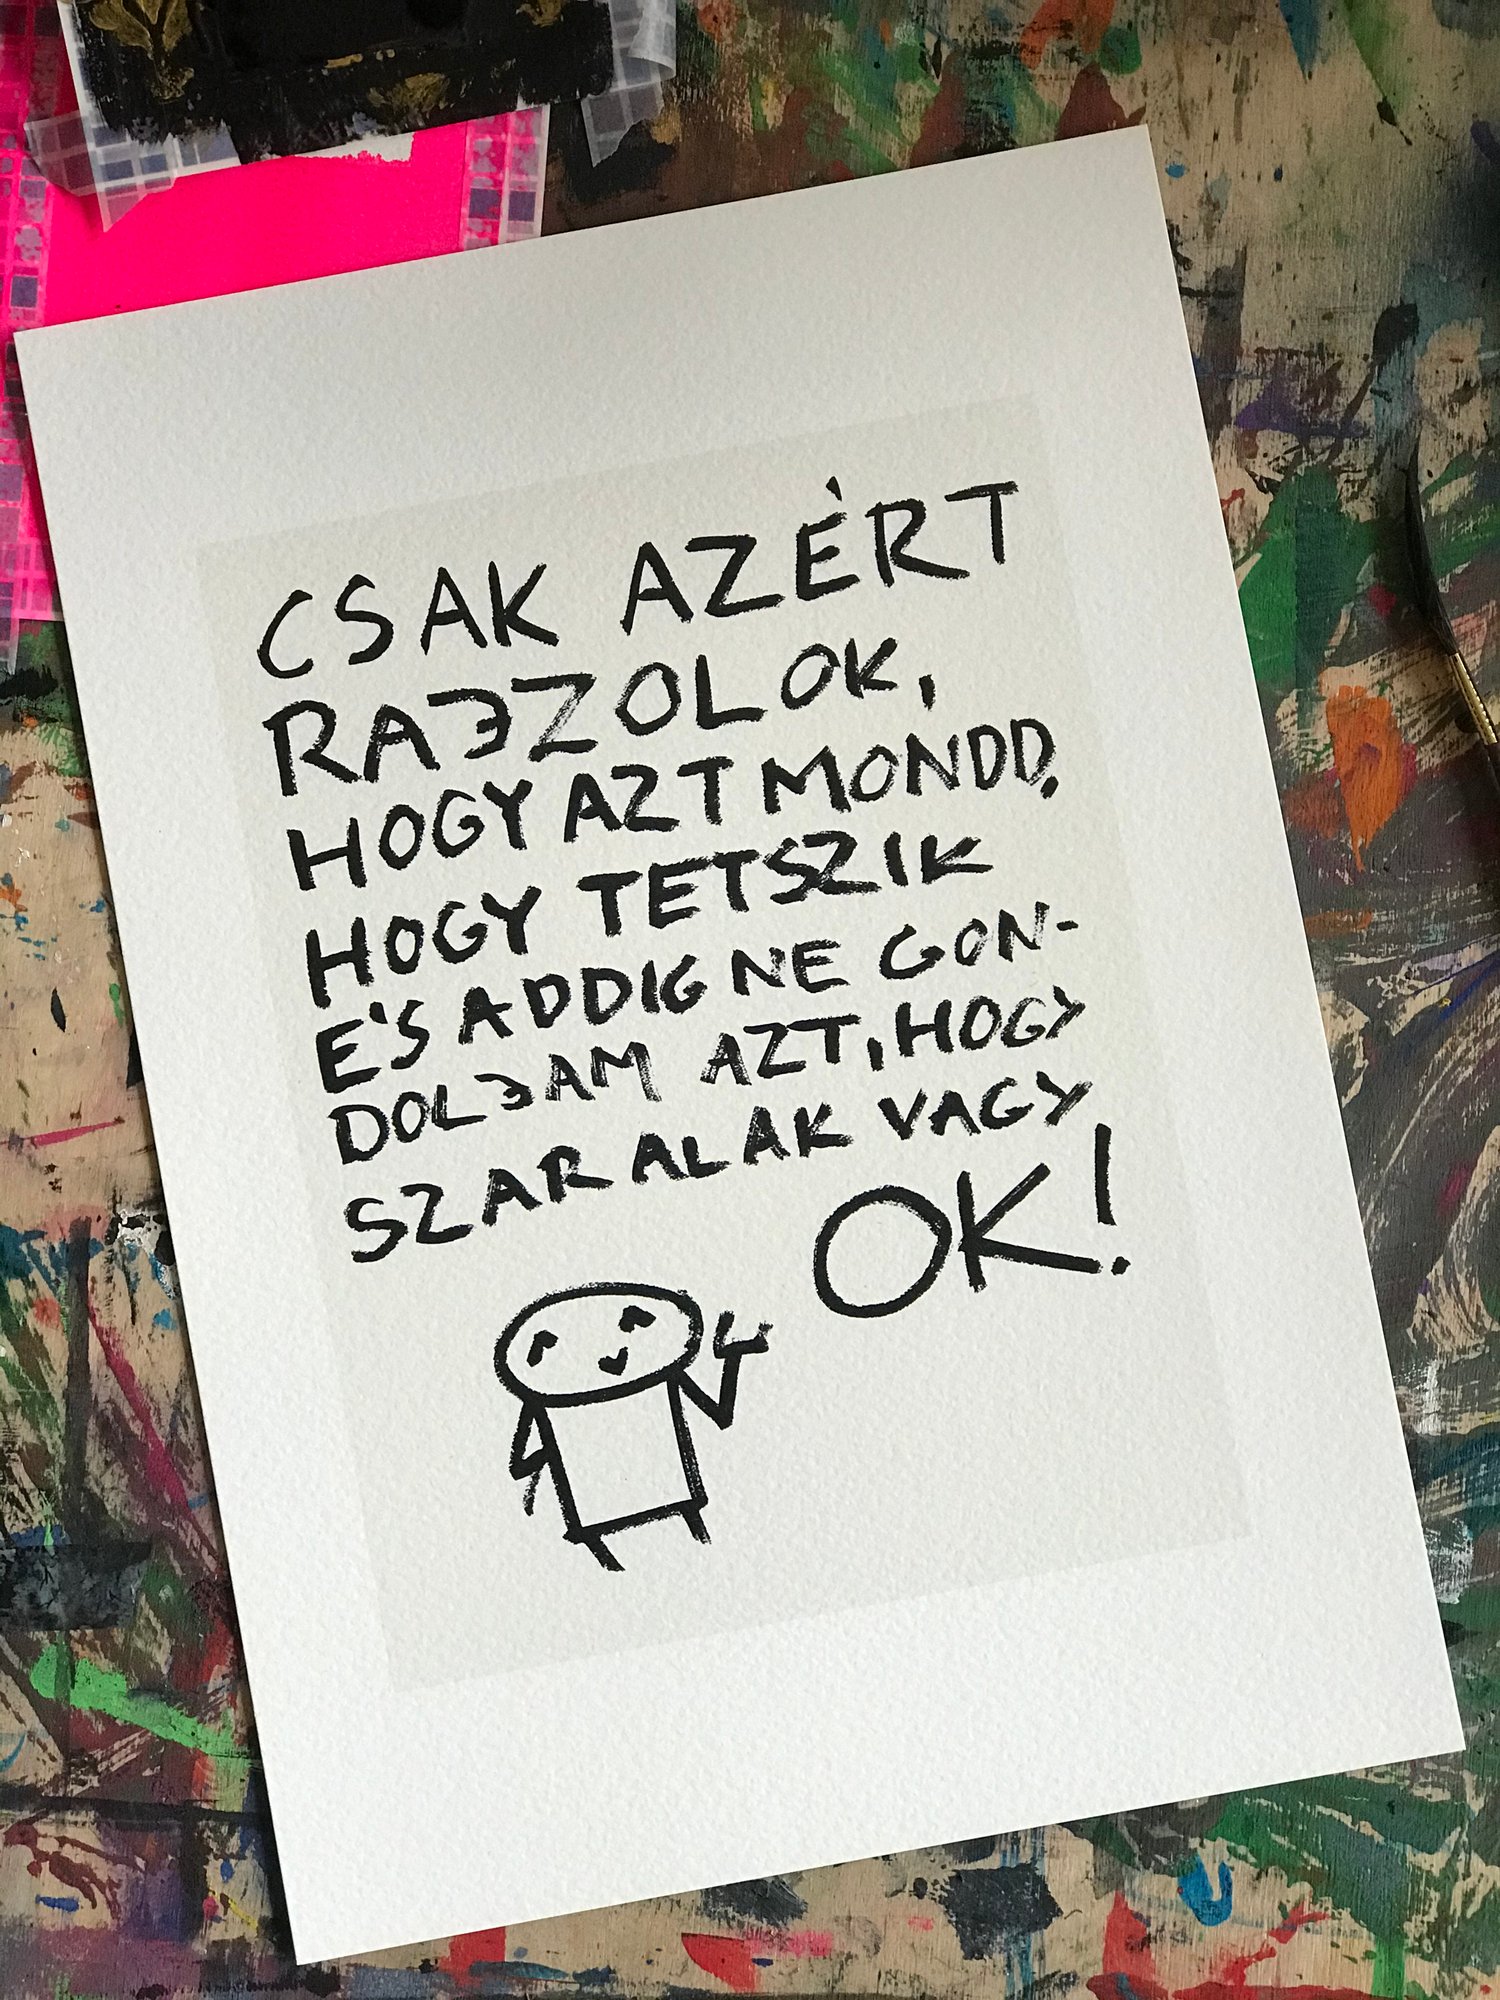 CSAK AZÉRT
RAJZOLOK,
HOGY AZT MONDD,
HOGY TETSZIK
ÉS ADDIG NE GON-
DOLJAM AZT, HOGY
SZAR ALAK VAGY
OK!